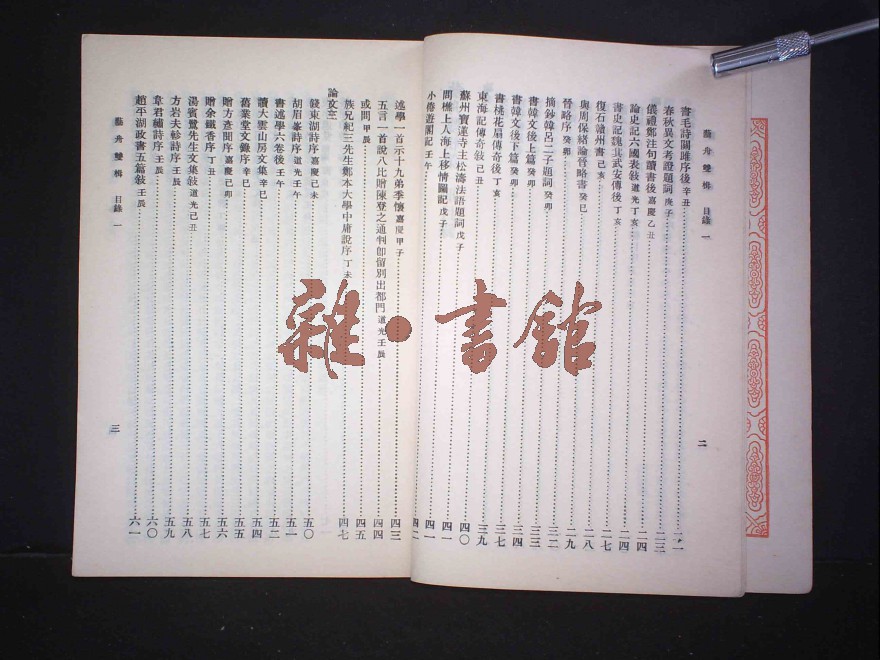 藝舟雙楫 目錄一
書毛詩關雎序後 辛丑 二一
春秋異文考證題詞 庚子 二三
儀禮鄭注句讀書後 嘉慶乙丑 二四
論史記六國表敘 道光丁亥 二四
書史記魏其武安傳後 丁亥 二五
復石贛州書 己亥 二七
與周保緒論晉略書 癸巳 二八
晉略序 癸卯 二九
摘鈔韓呂二子題詞 癸卯 三二
書韓文後上篇 癸卯 三三
書韓文後下篇 癸卯 三四
書桃花扇傳奇後 丁亥 三七
東海記傳奇敘 己丑 三九
蘇州寶蓮寺主松濤法語題詞 戊子 四〇
問樵上人海上移情圖記 戊子 四一
小倦遊閣記 壬午 四一
二
述學一首示十九弟季懷 嘉慶甲子 四三
五言一首說八比贈陳登之通判卽留別出都門 道光壬辰 四四
或問 甲辰 四五
族兄紀三先生鄭本大學中庸說序 丁未 四七
論文三
錢東湖詩序 嘉慶己未 五〇
胡眉峯詩序 道光壬午 五一
書述學六卷後 壬午 五二
讀大雲山房文集 辛巳 五四
舊業堂文鈔序 辛巳 五五
贈方彥聞序 嘉慶己卯 五六
贈余鐵香序 丁丑 五七
湯賓鷺先生文集敘 道光己丑 五八
方岩夫軫詩序 壬辰 五九
韋君繡詩序 壬辰 六〇
趙平湖政書五篇敘 壬辰 六一
藝舟雙楫 目錄一
三
雜·書館